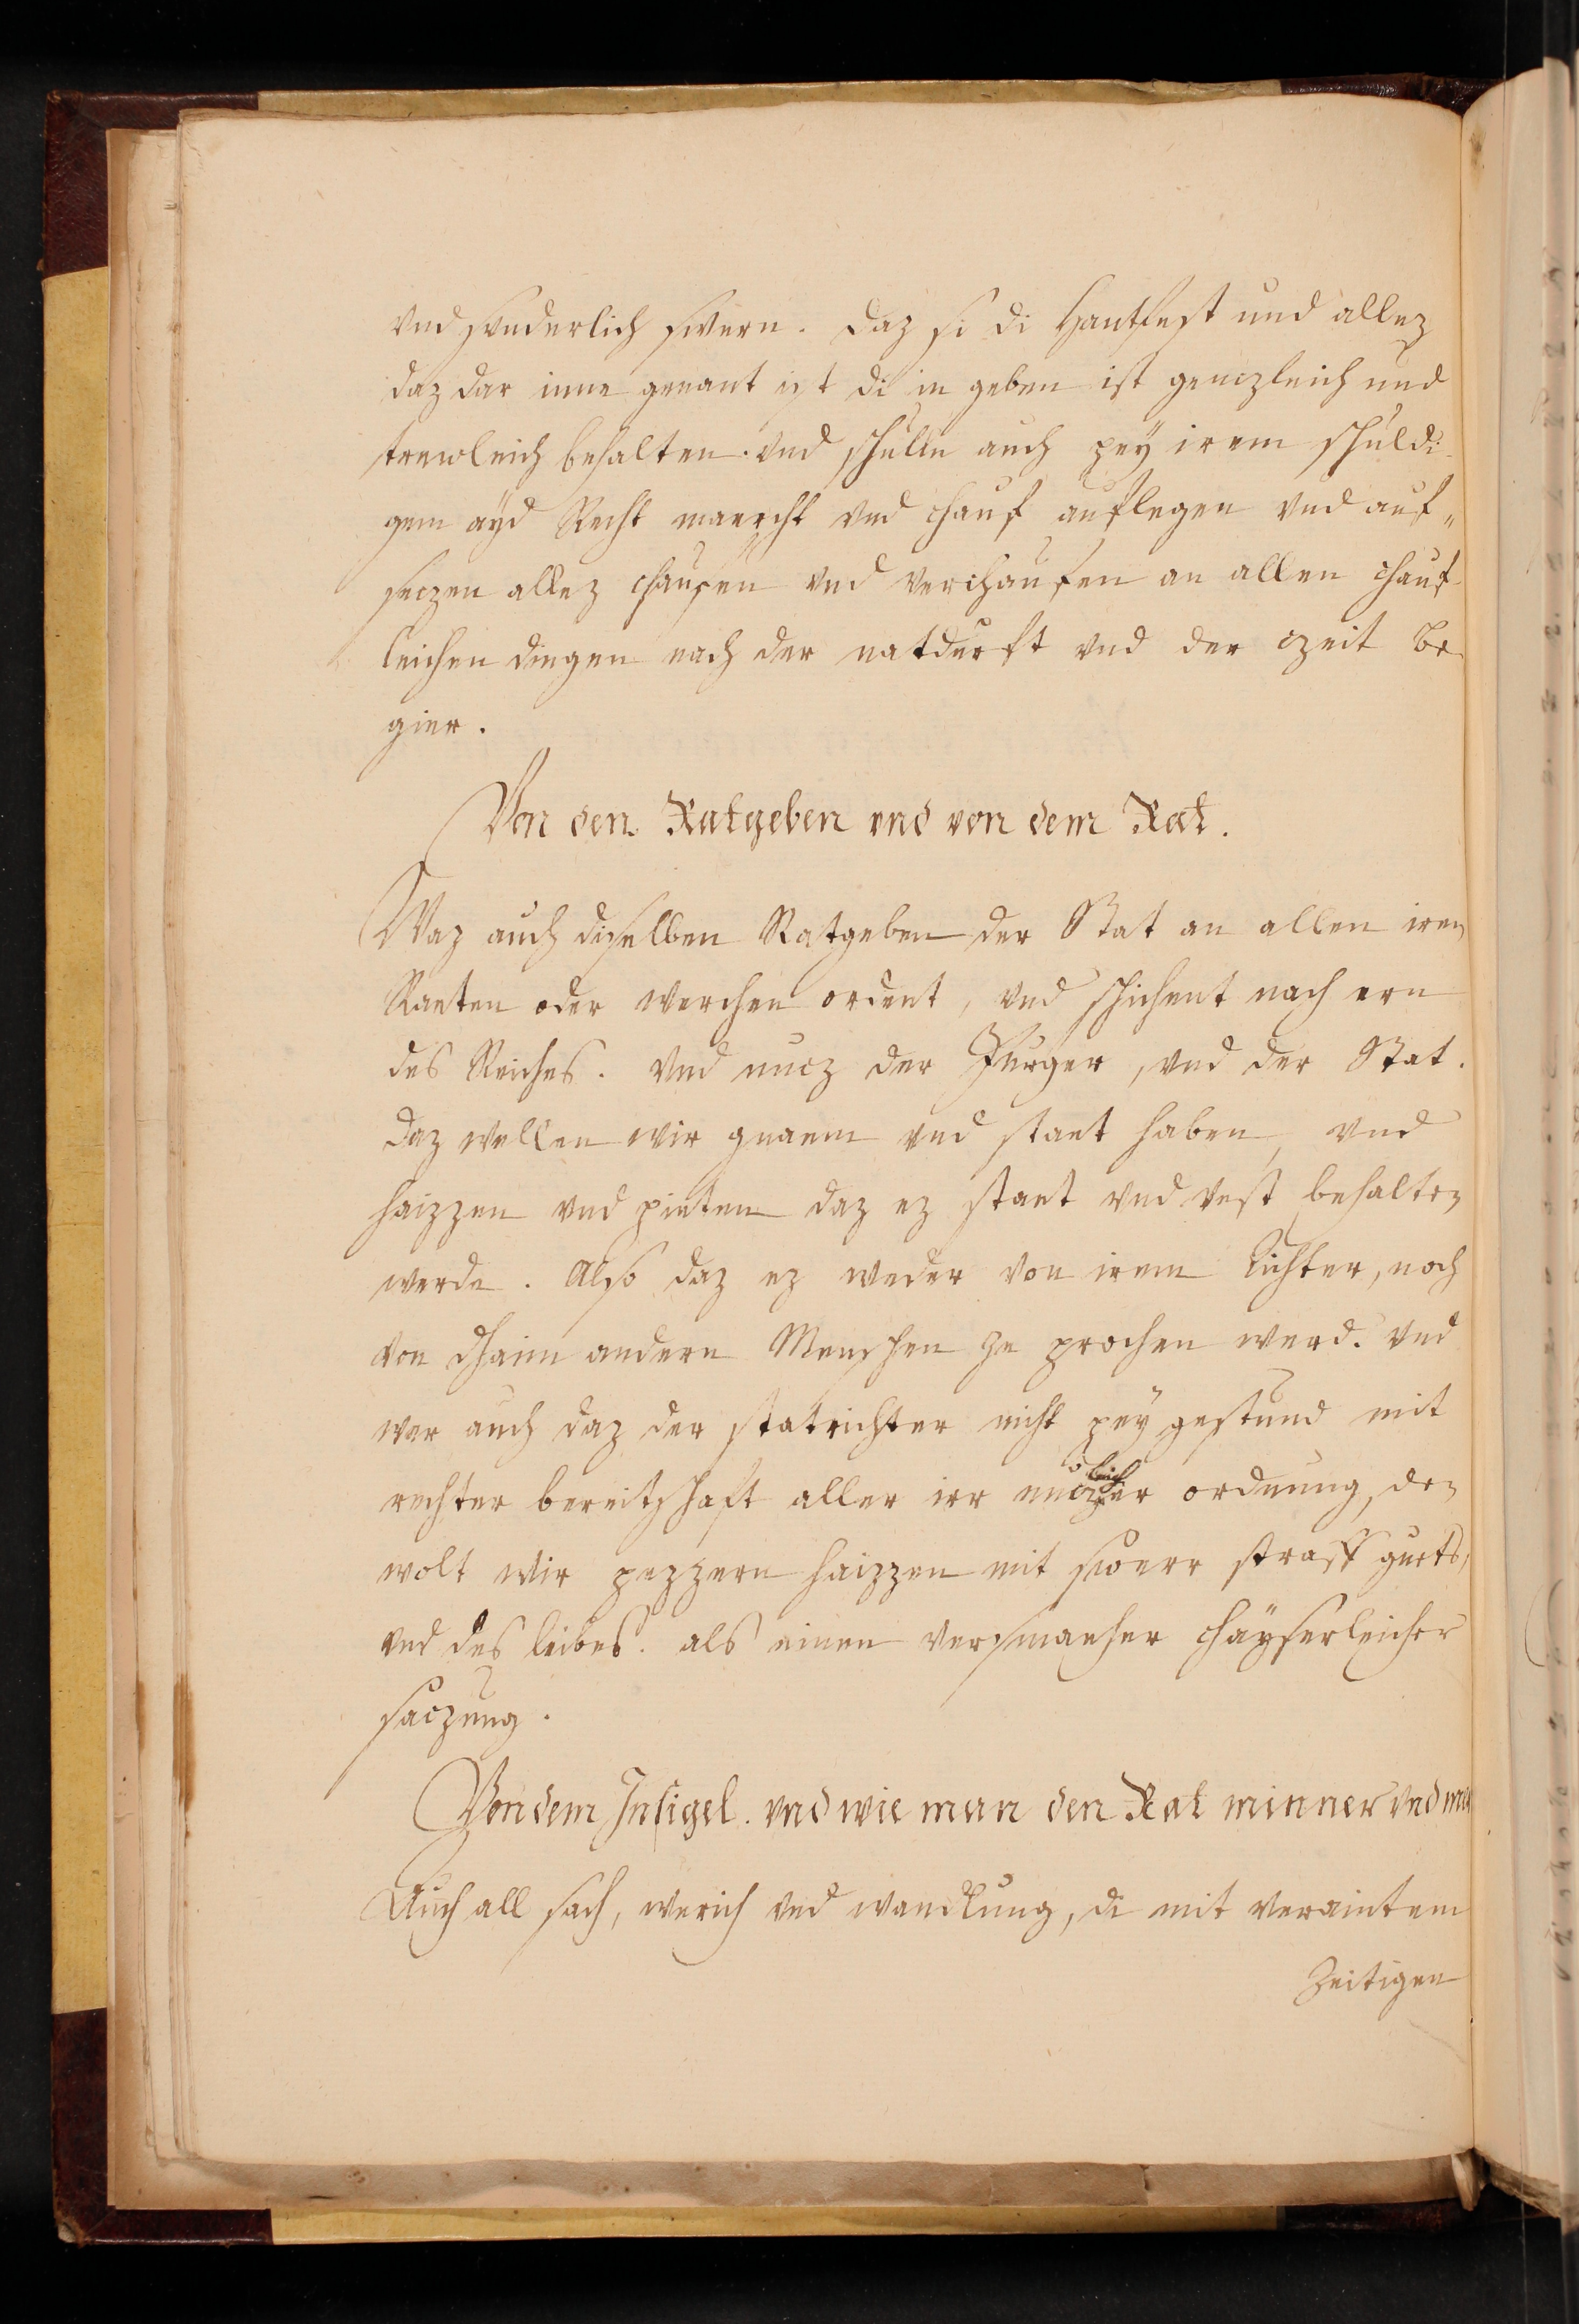 vnd sunderlich swern. daz si di Hantfest und allez
daz dar inne genant ist di in geben ist genczleich und
trewleich behalten. vnd schulln auch pey irem schuldi-
gem ayd Recht maercht vnd chauf auflegen vnd auf„
seczen allez chaufen vnd verchaufen an allen chauf-
leichen dingen nach der natdurft vnd der czeit be-
gier.
Von den Ratgeben vnd von dem Rat.
Waz auch diselben Ratgeben der Stat an allen iren
Raeten oder werchen ordent, vnd schichent nach ern
des Reiches. vnd nucz der Purger, vnd der Stat.
daz wellen wir gnaem vnd staet haben, vnd
haizzen vnd pieten daz ez staet vnd vest behalten
werde. Also daz ez weder von irem Richter, noch
von dhaim andern Menschen ze prochen werd. vnd
wer auch daz der statrichter nicht pey gestund mit
rechter bereitschaft aller irr nuczleicher ordnung, den
wolt wir pezzern haizzen mit swerr straff guets,
vnd des leibes. als einen versmaeher chayserleicher
saczung.
Von dem Insigel. vnd wie man den Rat minner vnd
Auch all sach, werich vnd wandlung, di mit veraintem
zeitigen